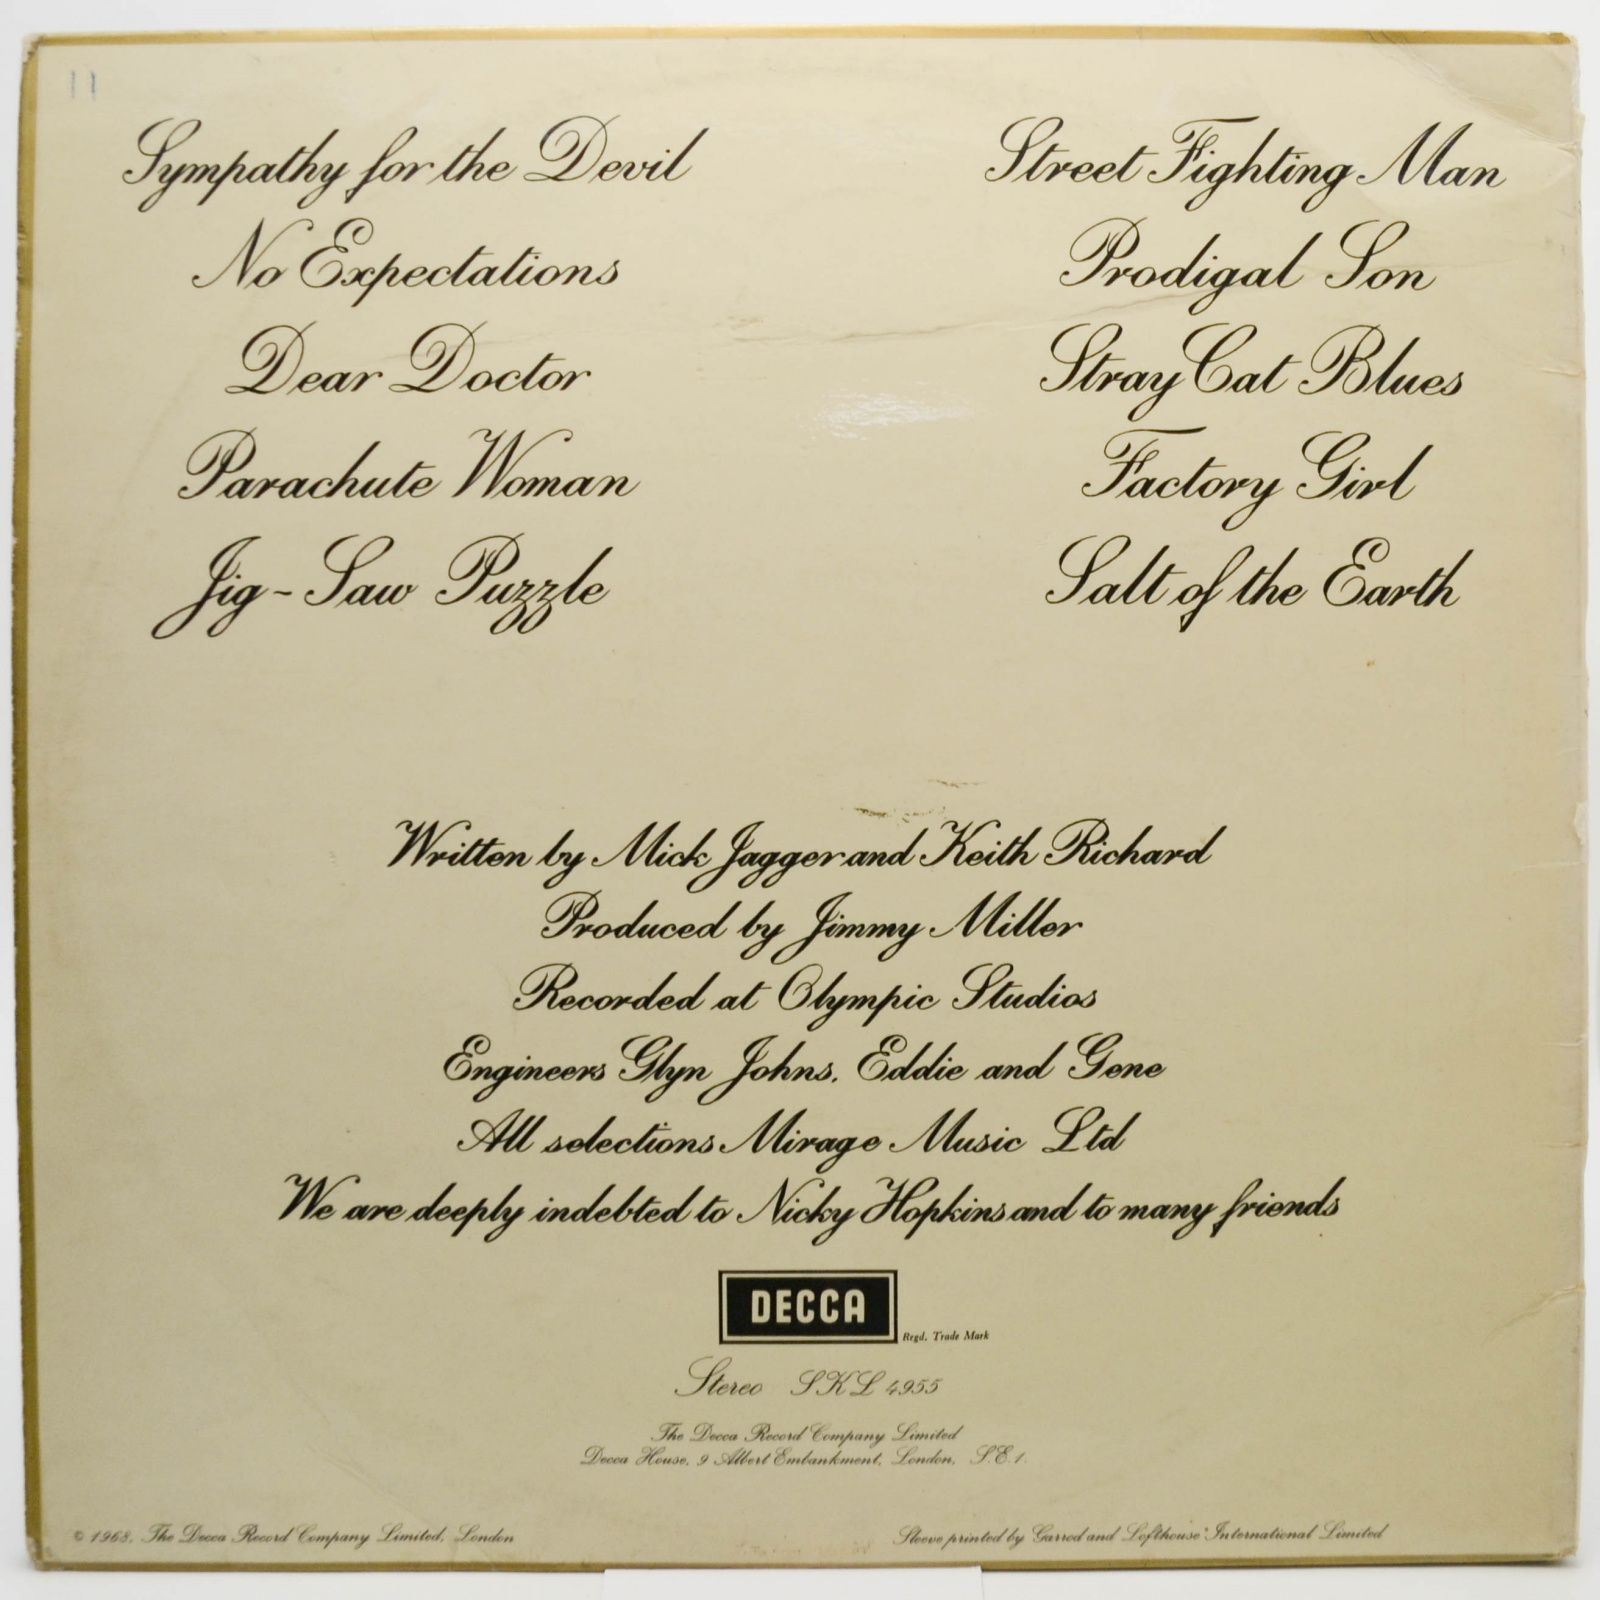 11
Sympathy for the Devil
No Expectations
Dear Doctor
Parachute Woman
Jig-Saw Puzzle
Street Fighting Man
Prodigal Son
Stray Cat Blues
Factory Girl
Salt of the Earth
Written by Mick Jagger and Keith Richard
Produced by Jimmy Miller
Recorded at Olympic Studios
Engineers Glyn Johns. Eddie and Gene
All selections Mirage Music Ltd
We are deeply indebted to Nicky Hopkins and to many friends
DECCA
Regd. Trade Mark
Stereo SKL 4955
The Decca Record Company Limited
Decca House, 9 Albert Embankment, London, S.E.1.
© 1968, The Decca Record Company Limited, London
Sleeve printed by Garrod and Lofthouse International Limited